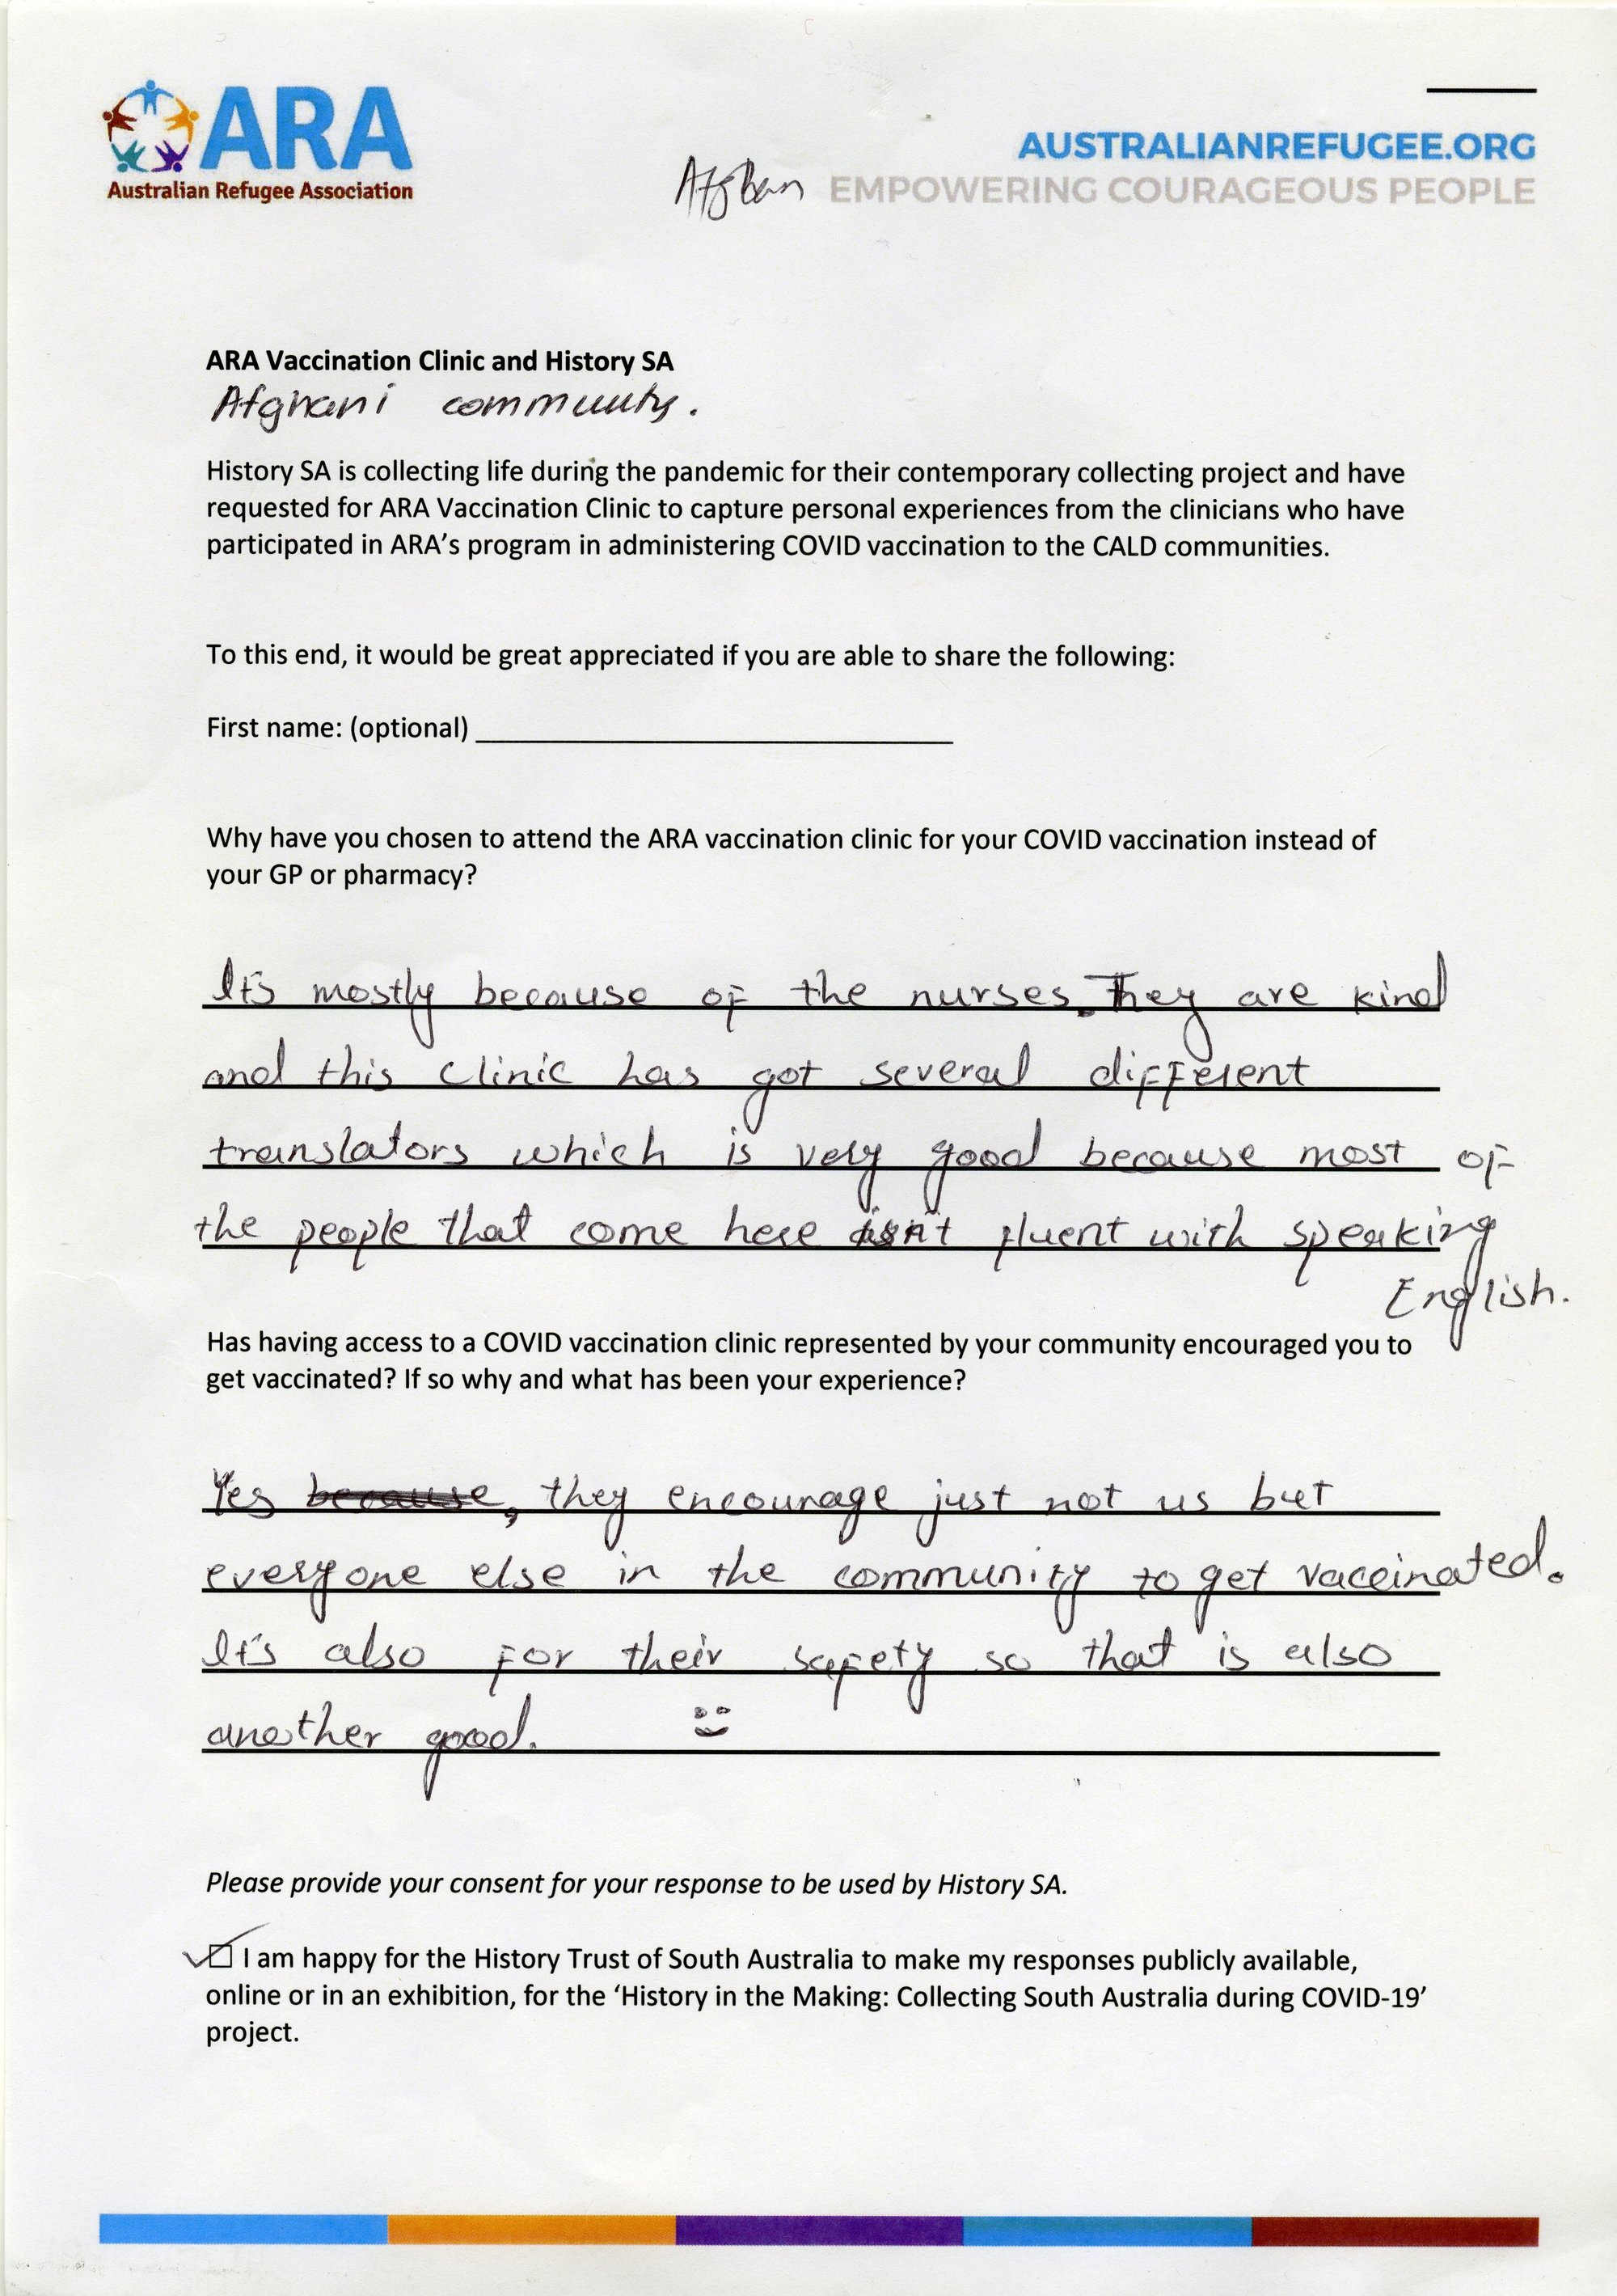 ARA
Australian Refugee Association
AUSTRALIANREFUGEE.ORG
Afghan EMPOWERING COURAGEOUS PEOPLE
ARA Vaccination Clinic and History SA
Afghani community.
History SA is collecting life during the pandemic for their contemporary collecting project and have
requested for ARA Vaccination Clinic to capture personal experiences from the clinicians who have
participated in ARA's program in administering COVID vaccination to the CALD communities.
To this end, it would be great appreciated if you are able to share the following:
First name: (optional)
Why have you chosen to attend the ARA vaccination clinic for your COVID vaccination instead of
your GP or pharmacy?
It's mostly because of the nurses. They are kind
and this clinic has got several different
translators which is very good because most of
the people that come here isn't fluent with speaking
English.
Has having access to a COVID vaccination clinic represented by your community encouraged you to
get vaccinated? If so why and what has been your experience?
Yes because, they encourage just not us but
everyone else in the community to get vaccinated.
It's also for their safety so that is also
another good.
Please provide your consent for your response to be used by History SA.
I am happy for the History Trust of South Australia to make my responses publicly available,
online or in an exhibition, for the 'History in the Making: Collecting South Australia during COVID-19'
project.